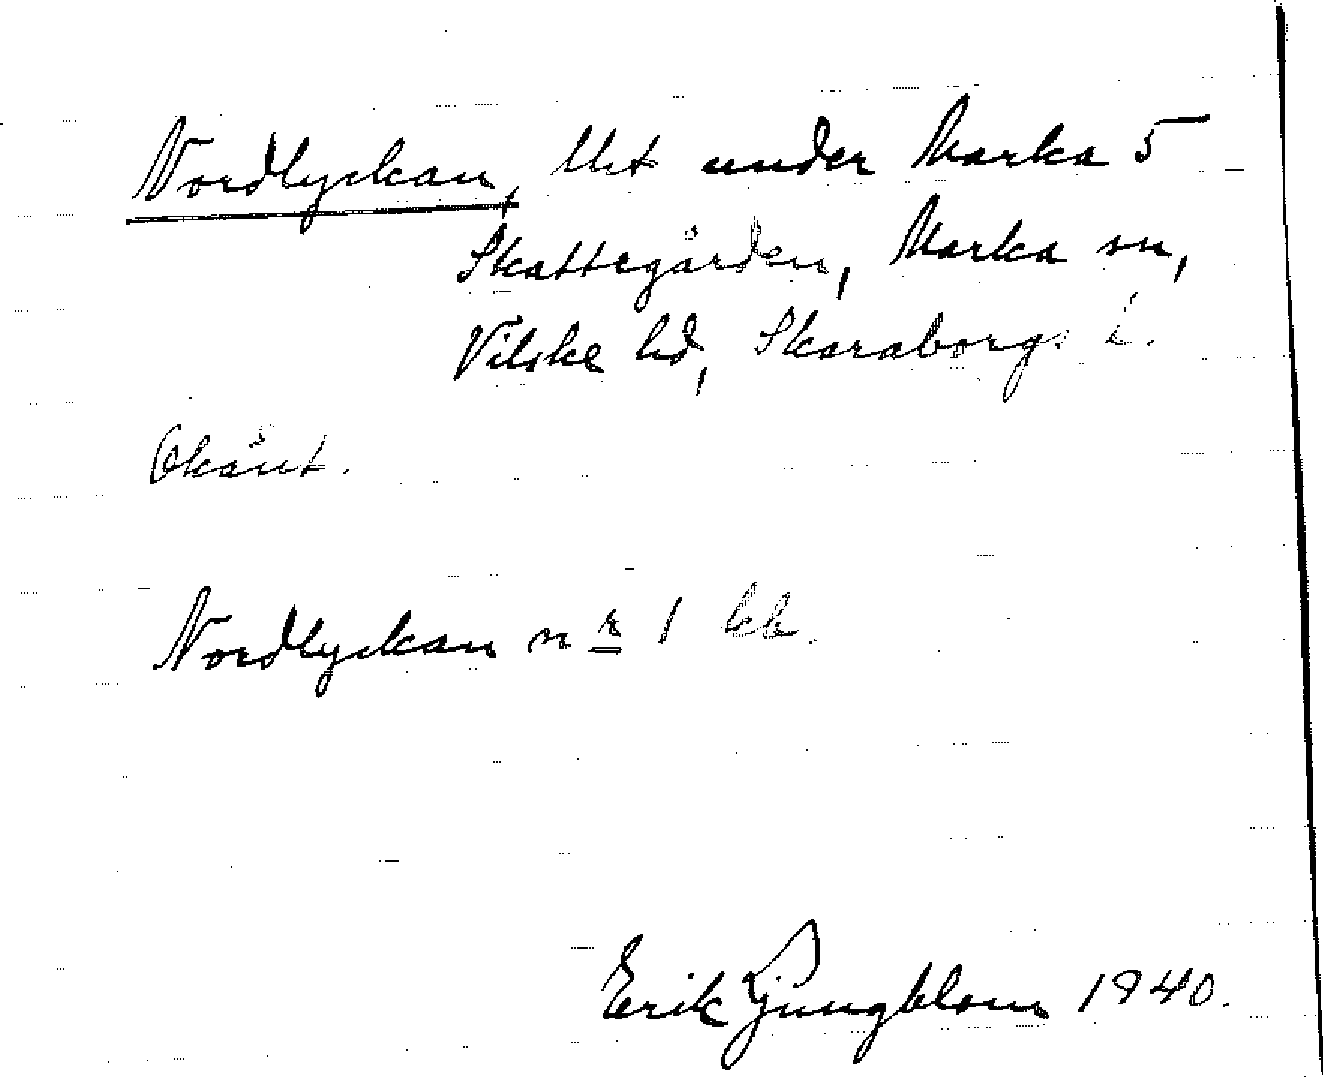 Nordlyckan, lht under Marka 5
Skattegården, Marka sn,
Vilske hd, Skaraborgs l.
Okänt.
Nordlyckan nr 1
Erik Ljungblom 1940.